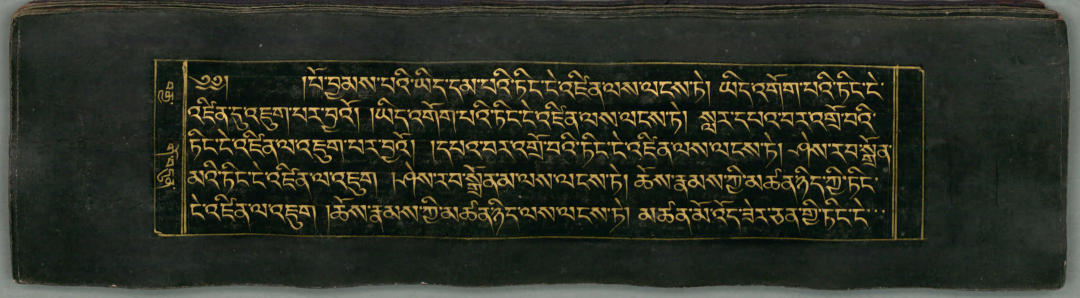 ༄༅། །པོ་བྱམས་པའི་ཡིད་དམ་པའི་ཏིང་ངེ་འཛིན་ལས་ལངས་ཏེ། ཡིད་འགོག་པའི་ཏིང་ངེ་
འཛིན་དུ་འཇུག་པར་བྱའོ། །ཡིད་འགོག་པའི་ཏིང་ངེ་འཛིན་ལས་ལངས་ཏེ། སླར་དཔའ་བར་འགྲོ་བའི་
ཏིང་ངེ་འཛིན་ལ་འཇུག་པར་བྱའོ། །དཔའ་བར་འགྲོ་བའི་ཏིང་ངེ་འཛིན་ལས་ལངས་ཏེ། ཤེས་རབ་སྒྲོན་
མའི་ཏིང་ངེ་འཛིན་ལ་འཇུག །ཤེས་རབ་སྒྲོན་མ་ལས་ལངས་ཏེ། ཆོས་རྣམས་ཀྱི་མཚན་ཉིད་ཀྱི་ཏིང་
ངེ་འཛིན་ལ་འཇུག །ཆོས་རྣམས་ཀྱི་མཚན་ཉིད་ལས་ལངས་ཏེ། མཚན་མོ་འོད་ཟེར་ཅན་གྱི་ཏིང་ངེ་